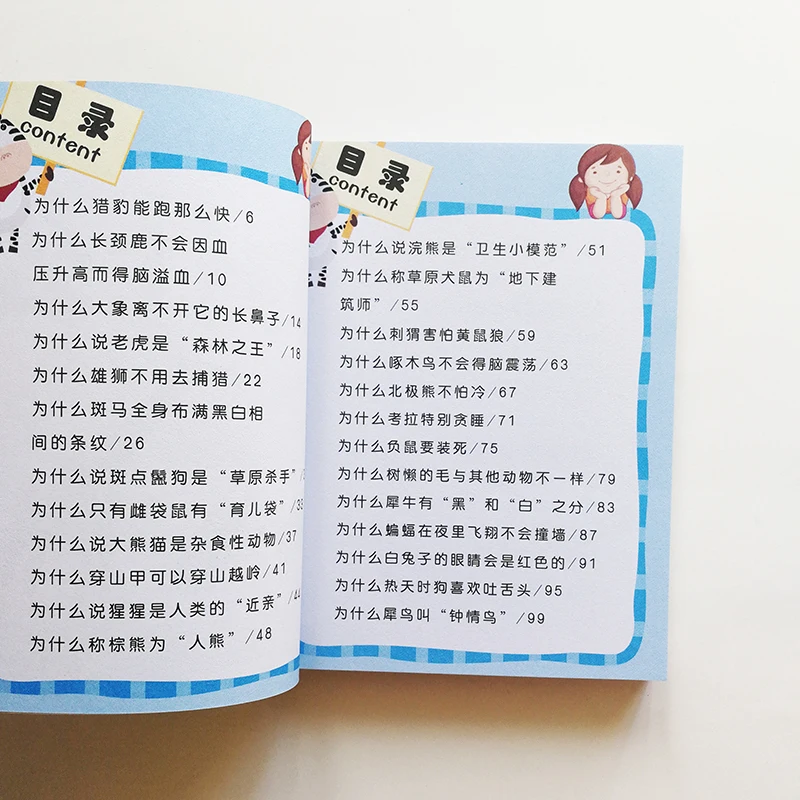 目录
content
为什么猎豹能跑那么快/6
为什么长颈鹿不会因血
压升高而得脑溢血/10
为什么大象离不开它的长鼻子/14
为什么说老虎是“森林之王”/18
为什么雄狮不用去捕猎/22
为什么斑马全身布满黑白相
间的条纹/26
为什么说斑点鬣狗是“草原杀手”
为什么只有雌袋鼠有“育儿袋”/33
为什么说大熊猫是杂食性动物/37
为什么穿山甲可以穿山越岭/41
为什么说猩猩是人类的“近亲”/44
为什么称棕熊为“人熊”/48
目录
content
为什么说浣熊是“卫生小模范”/51
为什么称草原犬鼠为“地下建
筑师”/55
为什么刺猬害怕黄鼠狼/59
为什么啄木鸟不会得脑震荡/63
为什么北极熊不怕冷/67
为什么考拉特别贪睡/71
为什么负鼠要装死/75
为什么树懒的毛与其他动物不一样/79
为什么犀牛有“黑”和“白”之分/83
为什么蝙蝠在夜里飞翔不会撞墙/87
为什么白兔子的眼睛会是红色的/91
为什么热天时狗喜欢吐舌头/95
为什么犀鸟叫“钟情鸟”/99